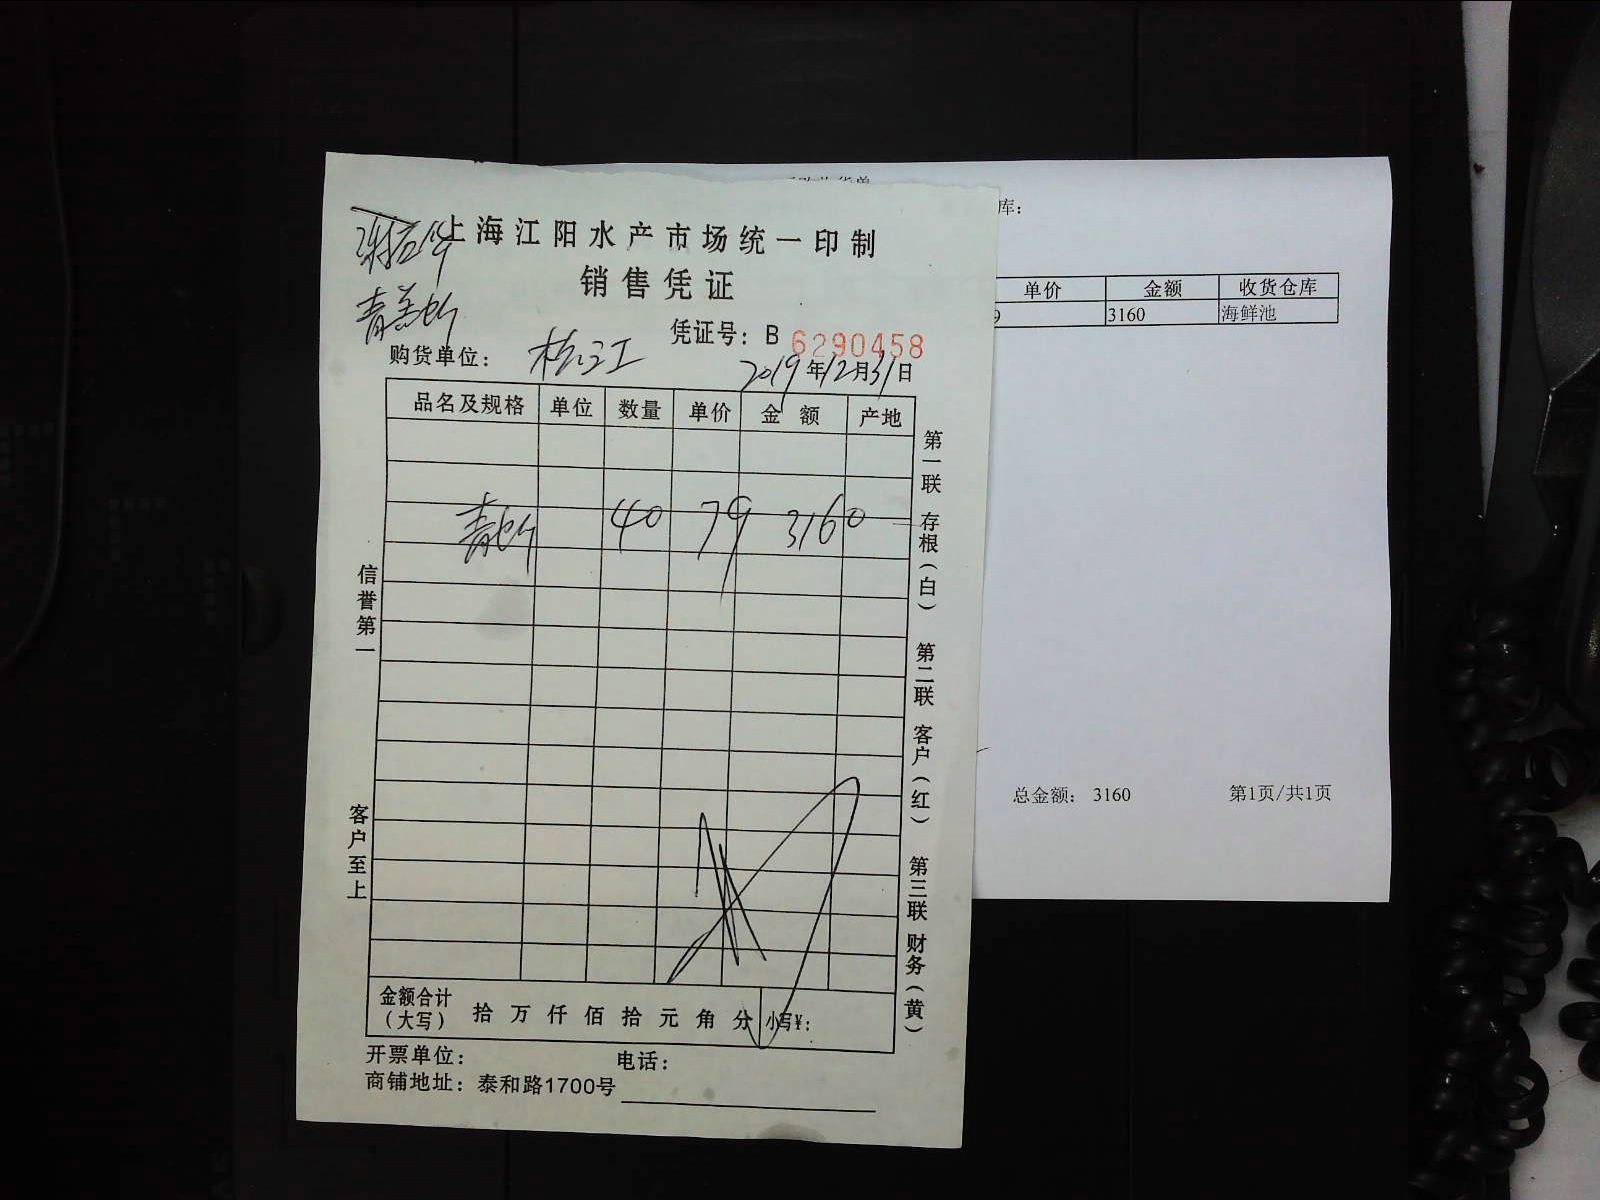 上海江阳水产市场统一印制
销售凭证
凭证号：B 6290458
购货单位： 松江
2019年12月31日
品名及规格 单位 数量 单价 金额 产地
40 79 3160
信誉第一
客户至上
第一联 存根（白） 第二联 客户（红） 第三联 财务（黄）
金额合计（大写） 拾 万 仟 佰 拾 元 角 分 小写¥：
开票单位： 电话：
商铺地址：泰和路1700号
库：
单价 金额 收货仓库
9 3160 海鲜池
总金额： 3160 第1页/共1页